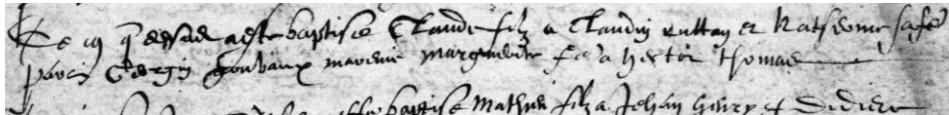 Le iij q dessus a este baptisé Claude filz a Claudin ruttay et Katherine sa fe
parin Georgin gouvaux marenne marguerite fe a hector thomas
baptise Mathieu filz a Jehan henry et Didiere